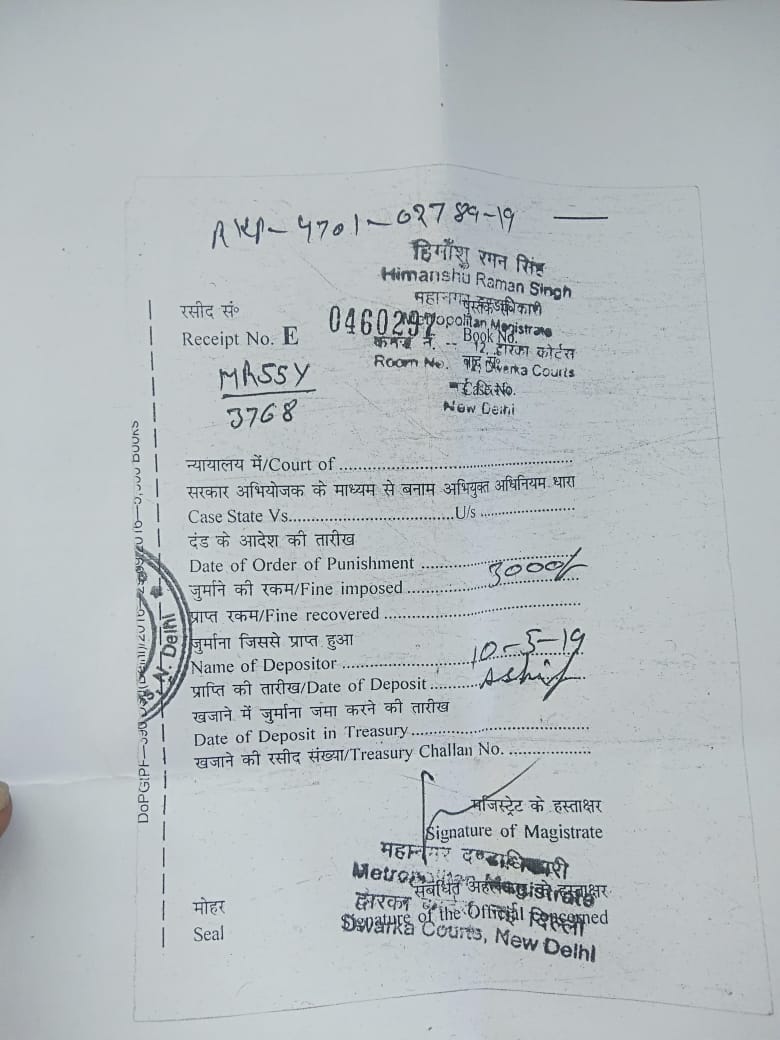 4701-02789-19
हिमाँशु रमन सिंह
Himanshu Raman Singh
रसीद सं०
पुस्तक सं०
0460297
Metropolitan Magistrate
Receipt No. E
Book No.
12, द्वारका कोर्टस
Room No. Dwarka Courts
MASSY
नई
New Delhi
3768
न्यायालय में/Court of
सरकार अभियोजक के माध्यम से बनाम अभियुक्त अधिनियम धारा
Case State Vs. U/s
दंड के आदेश की तारीख
Date of Order of Punishment
जुर्माने की रकम/Fine imposed 3000/-
प्राप्त रकम/Fine recovered
जुर्माना जिससे प्राप्त हुआ
Name of Depositor 10-5-19
प्राप्ति की तारीख/Date of Deposit Ashif
खजाने में जुर्माना जमा करने की तारीख
Date of Deposit in Treasury
खजाने की रसीद संख्या/Treasury Challan No.
मजिस्ट्रेट के हस्ताक्षर
Signature of Magistrate
महानगर दण्डाधिकारी
Metropolitan Magistrate
संबंधित अहलमद के हस्ताक्षर
मोहर
द्वारका दिल्ली
Signature of the Official Concerned
Seal
Dwarka Courts, New Delhi
N. Delhi
DoPGIPF